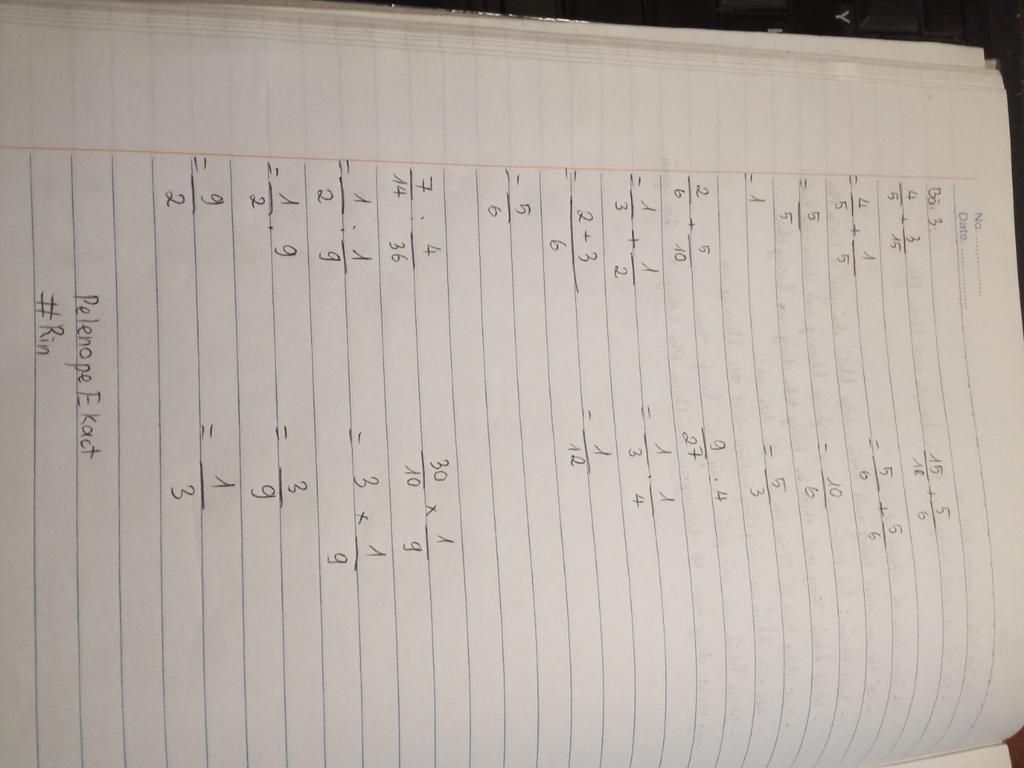 No.
Date
Bài 3:
4/5 + 3/15
= 4/5 + 1/5
= 5/5
= 1
15/18 + 5/6
= 5/6 + 5/6
= 10/6
= 5/3
2/6 + 5/10
= 1/3 + 1/2
= 2+3/6
= 5/6
9/27 : 4
= 1/3 . 1/4
= 1/12
7/14 : 4/36
= 1/2 : 1/9
= 1/2 . 9
= 9/2
30/10 × 1/9
= 3 × 1/9
= 3/9
= 1/3
Pelenope Ekact
#Rin
Y